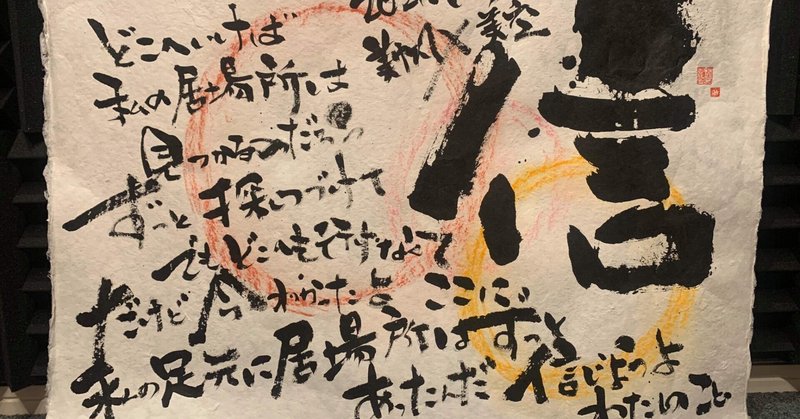 信
どこへいけば
私の居場所は
見つかるのだろう
ずっと探しつづけて
でもどこへも行けなくて
だけど今わかったよ ここに
私の足元に居場所はずっと
あったんだ 信じようよ
わたしのこと